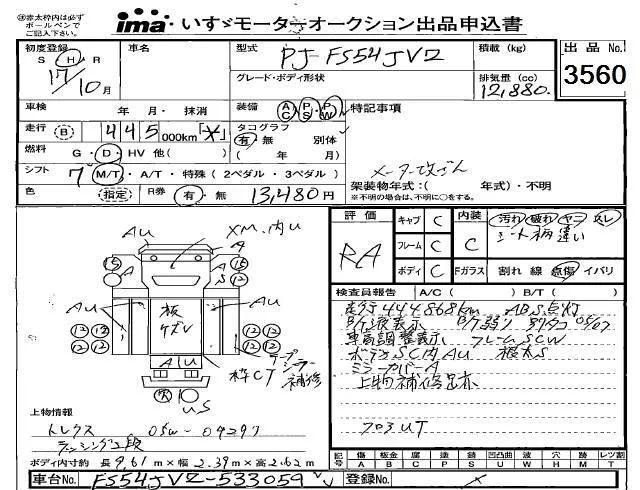 ㊟赤太枠内は必ず
ボールペンで
ご記入ください。
ima いすゞモーターオークション出品申込書
初度登録 S H R 17/10月
車名
型式 PJ-FS54JVZ
グレード・ボディ形状
積載 (kg)
排気量 (cc) 12,880.
出品 No. 3560
車検 年 月・ 抹消
装備 AC・PS・PW
特記事項
走行 B 445000km「✕」
タコグラフ 有・無 別体
( 年 月)
燃料 G・D・HV 他( )
シフト 7 M/T・A/T・特殊(2ペダル・3ペダル)
メーター改ざん
架装物年式:( 年式)・不明
※不明の場合は、不明に○をする。
色 指定 R券 有・無 13,480円
評価 RA
キャブ C
フレーム C
ボディ C
内装 C
Fガラス
汚れ 破れ ヤニ スレ
シート柄違い
割れ 線 点傷 イバリ
検査員報告 A/C( ) B/T( )
走行444868km ABS点灯
車高調整表示 フレームSCW
ボディSC内AU 根太S
ミラーカバーA
上物補修足赤
フロ3UT
AU XM.内U
A
15 A 15
15 A S 12
AU 板ケズレ AU
12 12 12 12
12 12 12 12
AU
枠CT テープシーラー補修
US
上物情報
トレクス 05W-04297
ラッシング2段
ボディ内寸約 長9.61m×幅2.39m×高2.62m
記号 傷A 板金B 腐C 塗P 錆S 凹凸曲U 波W 穴H 跡M レツ割T
車台No. FS54JVZ-533059
登録No. ✕